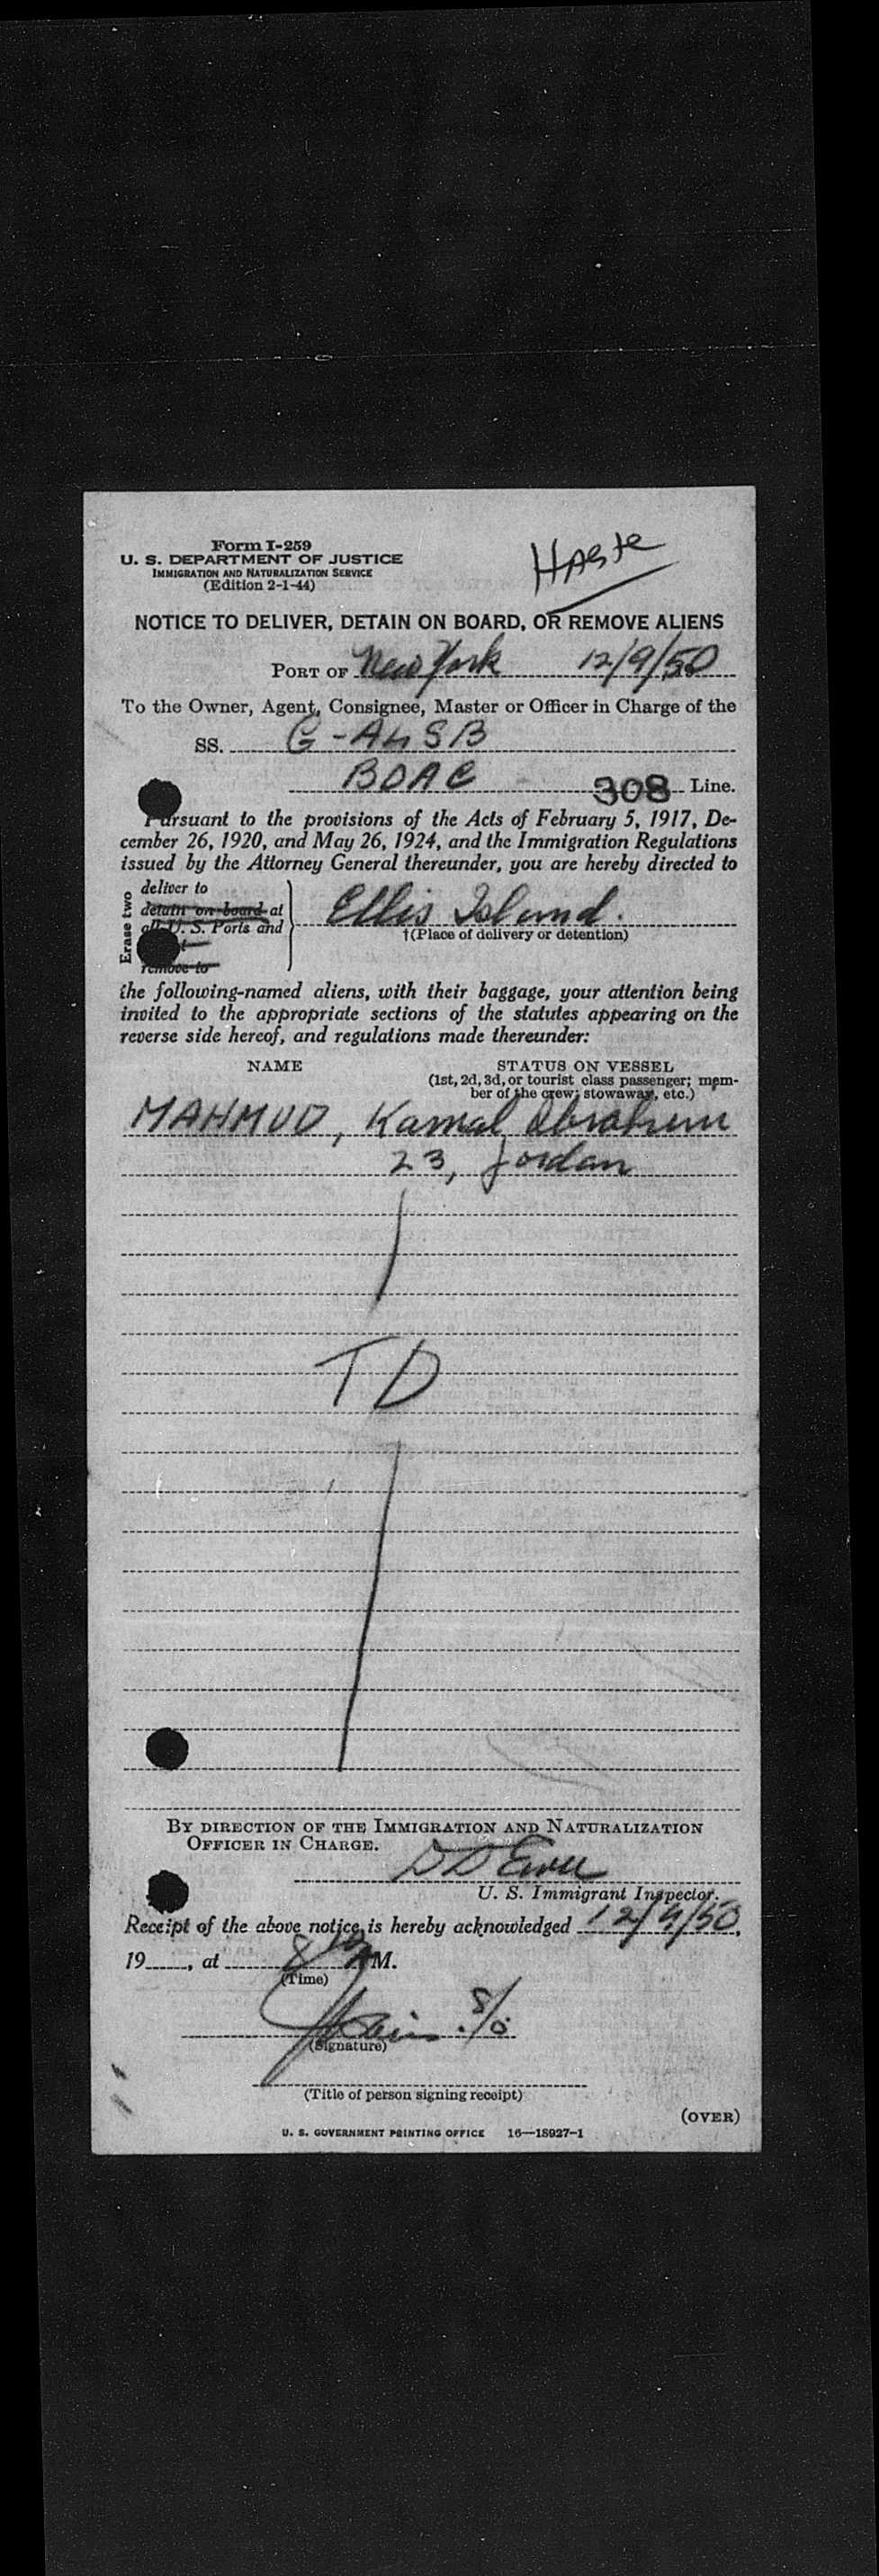 Form I-259
U. S. DEPARTMENT OF JUSTICE
IMMIGRATION AND NATURALIZATION SERVICE
(Edition 2-1-44)
HAste
NOTICE TO DELIVER, DETAIN ON BOARD, OR REMOVE ALIENS
PORT OF New York 12/9/50
To the Owner, Agent, Consignee, Master or Officer in Charge of the
SS. G-AHSB
BOAC 308 Line.
Pursuant to the provisions of the Acts of February 5, 1917, De-
cember 26, 1920, and May 26, 1924, and the Immigration Regulations
issued by the Attorney General thereunder, you are hereby directed to
Erase two
deliver to
detain on board at
all U. S. Ports and
remove to
Ellis Island.
†(Place of delivery or detention)
the following-named aliens, with their baggage, your attention being
invited to the appropriate sections of the statutes appearing on the
reverse side hereof, and regulations made thereunder:
NAME STATUS ON VESSEL
(1st, 2d, 3d, or tourist class passenger; mem-
ber of the crew; stowaway, etc.)
MAHMUD, Kamal Ibrahim
23, Jordan
TD
BY DIRECTION OF THE IMMIGRATION AND NATURALIZATION
OFFICER IN CHARGE.
U. S. Immigrant Inspector.
Receipt of the above notice is hereby acknowledged 12/9/50,
19____, at 8 AM.
(Time)
(Signature)
(Title of person signing receipt)
(OVER)
U. S. GOVERNMENT PRINTING OFFICE 16—18927-1